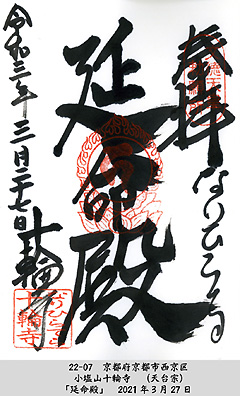 奉拝
なりひら寺
延命殿
令和三年三月二十七日
十輪寺
なりひら
十輪寺
22-07 京都府京都市西京区
小塩山十輪寺 (天台宗)
「延命殿」 2021年3月27日